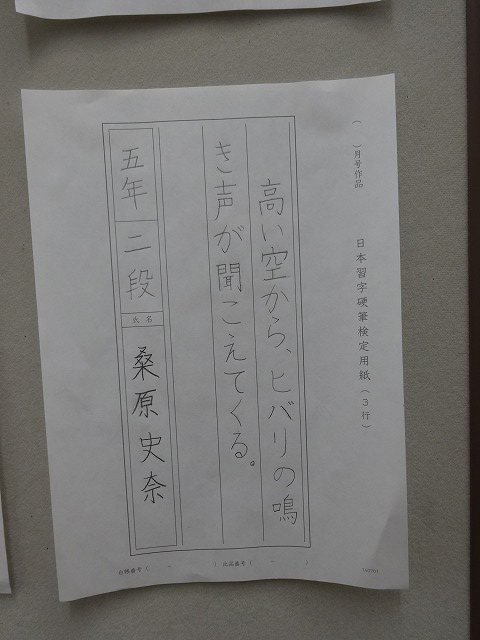 ( )月号作品
日本習字硬筆検定用紙(3行)
高い空から、ヒバリの鳴
き声が聞こえてくる。
五年 二段 氏名 桑原史奈
会員番号( - ) 出品番号( - )